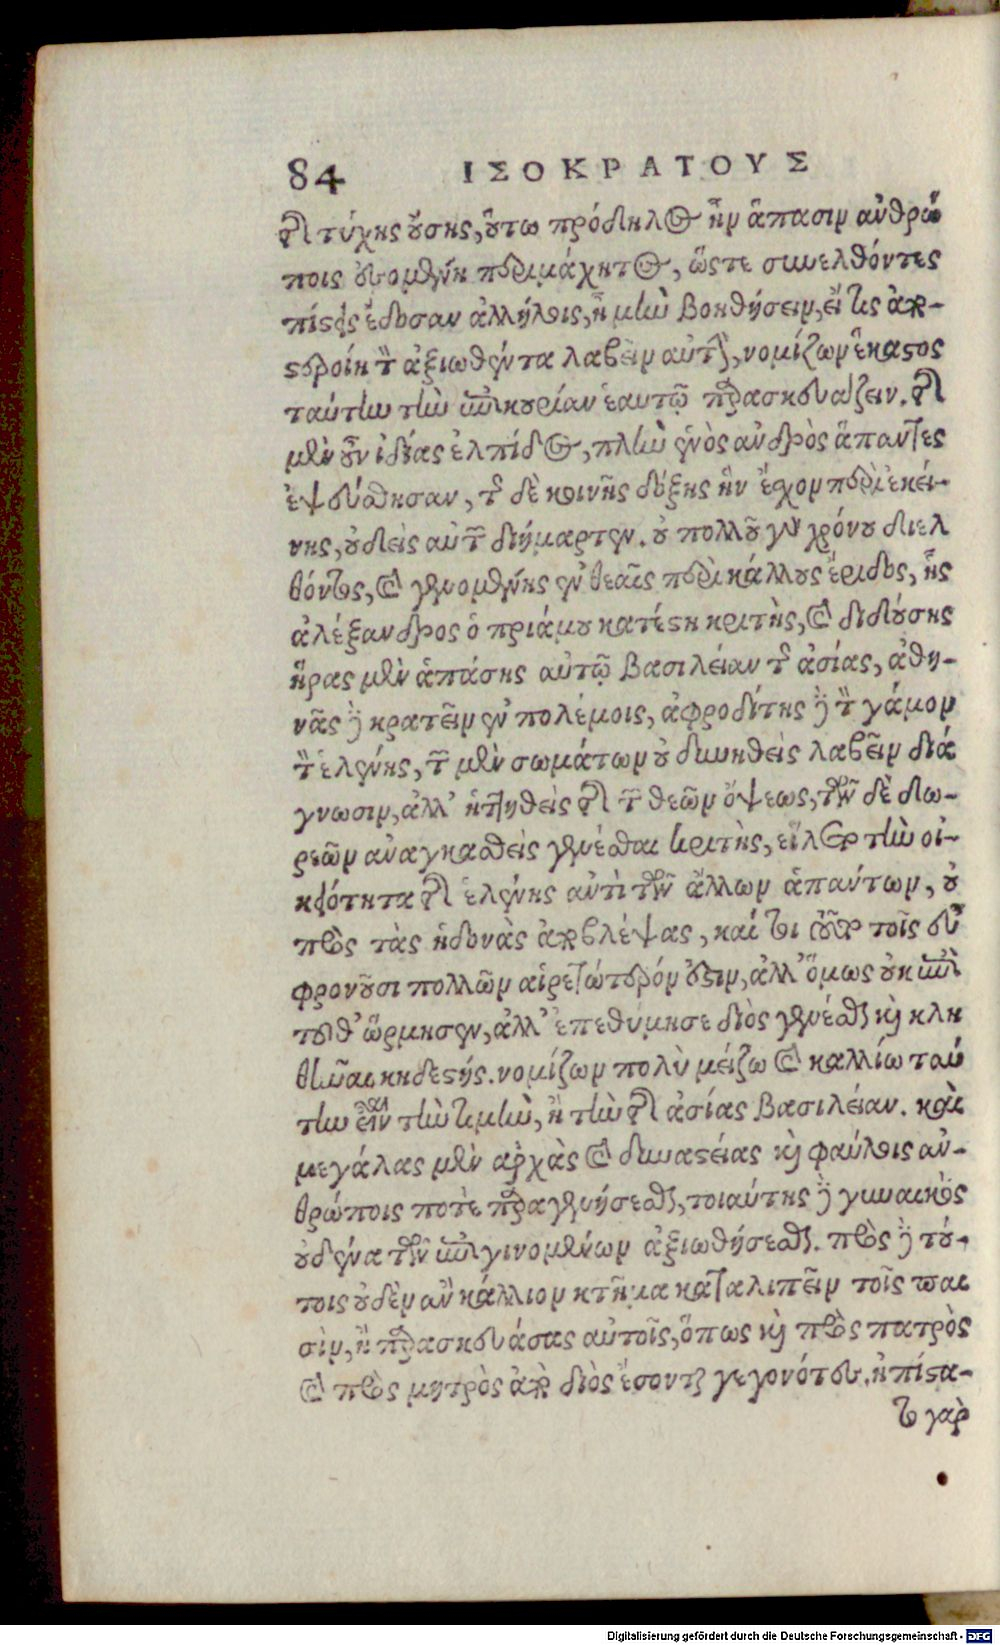 84 ΙΣΟΚΡΑΤΟΥΣ
τῆς τύχης οὔσης, οὕτω πρόδηλος ἦν ἅπασιν ἀνθρώ
ποις γενομένη περιμάχητος, ὥςτε συνελθόντες
πίστεις ἔδοσαν ἀλλήλοις, ἦ μὴν βοηθήσειν, εἴ τις ἀπο-
στεροίη τὸν ἀξιωθέντα λαβεῖν αὐτὴν, νομίζων ἕκαστος
ταύτην τὴν ἐπικουρίαν ἑαυτῷ παρασκευάζειν. τῆς
μὲν οὖν ἰδίας ἐλπίδος, πλὴν ἑνὸς ἀνδρὸς ἅπαντες
ἐψεύσθησαν, τῆς δὲ κοινῆς δόξης ἣν ἔσχον περὶ ἐκεί-
νης, οὐδεὶς αὐτῶν διήμαρτεν. οὐ πολλοῦ γὰρ χρόνου διελ
θόντος, καὶ γενομένης ἐν θεαῖς περὶ κάλλους ἔριδος, ἧς
ἀλέξανδρος ὁ πριάμου κατέστη κριτὴς, καὶ διδούσης
ἥρας μὲν ἁπάσης αὐτῷ βασιλείαν τῆς ἀσίας, ἀθη-
νᾶς δὲ κρατεῖν ἐν πολέμοις, ἀφροδίτης δὲ τὸν γάμον
τὸν ἑλένης, τῶν μὲν σωμάτων οὐ δυνηθεὶς λαβεῖν διά
γνωσιν, ἀλλ' ἡττηθεὶς τῆς τῶν θεῶν ὄψεως, τῶν δὲ δω-
ρεῶν ἀναγκασθεὶς γενέσθαι κριτὴς, εἵλετο τὴν οἰ-
κειότητα τῆς ἑλένης ἀντὶ τῶν ἄλλων ἁπάντων, οὐ
πρὸς τὰς ἡδονὰς ἀποβλέψας, καί τοι καὶ τοῦτο τοῖς εὖ
φρονοῦσι πολλῶν αἱρετώτερόν ἐστιν, ἀλλ' ὅμως οὐκ ἐπὶ
τοῦθ' ὥρμησεν, ἀλλ' ἐπεθύμησε διὸς γενέσθαι καὶ κλη
θῆναι κηδεστής. νομίζων πολὺ μείζω καὶ καλλίω ταύ
την εἶναι τὴν τιμὴν, ἢ τὴν τῆς ἀσίας βασιλείαν. καὶ
μεγάλας μὲν ἀρχὰς καὶ δυναστείας καὶ φαύλοις ἀν-
θρώποις ποτὲ παραγενήσεσθαι, τοιαύτης δὲ γυναικὸς
οὐδένα τῶν ἐπιγινομένων ἀξιωθήσεσθαι. πρὸς δὲ τού-
τοις οὐδὲν ἂν κάλλιον κτῆμα καταλιπεῖν τοῖς παι
σὶν, ἢ παρασκευάσας αὐτοῖς, ὅπως καὶ πρὸς πατρὸς
καὶ πρὸς μητρὸς ἀπὸ διὸς ἔσονται γεγονότες. ἠπίστα-
το γὰρ
Digitalisierung gefördert durch die Deutsche Forschungsgemeinschaft - DFG